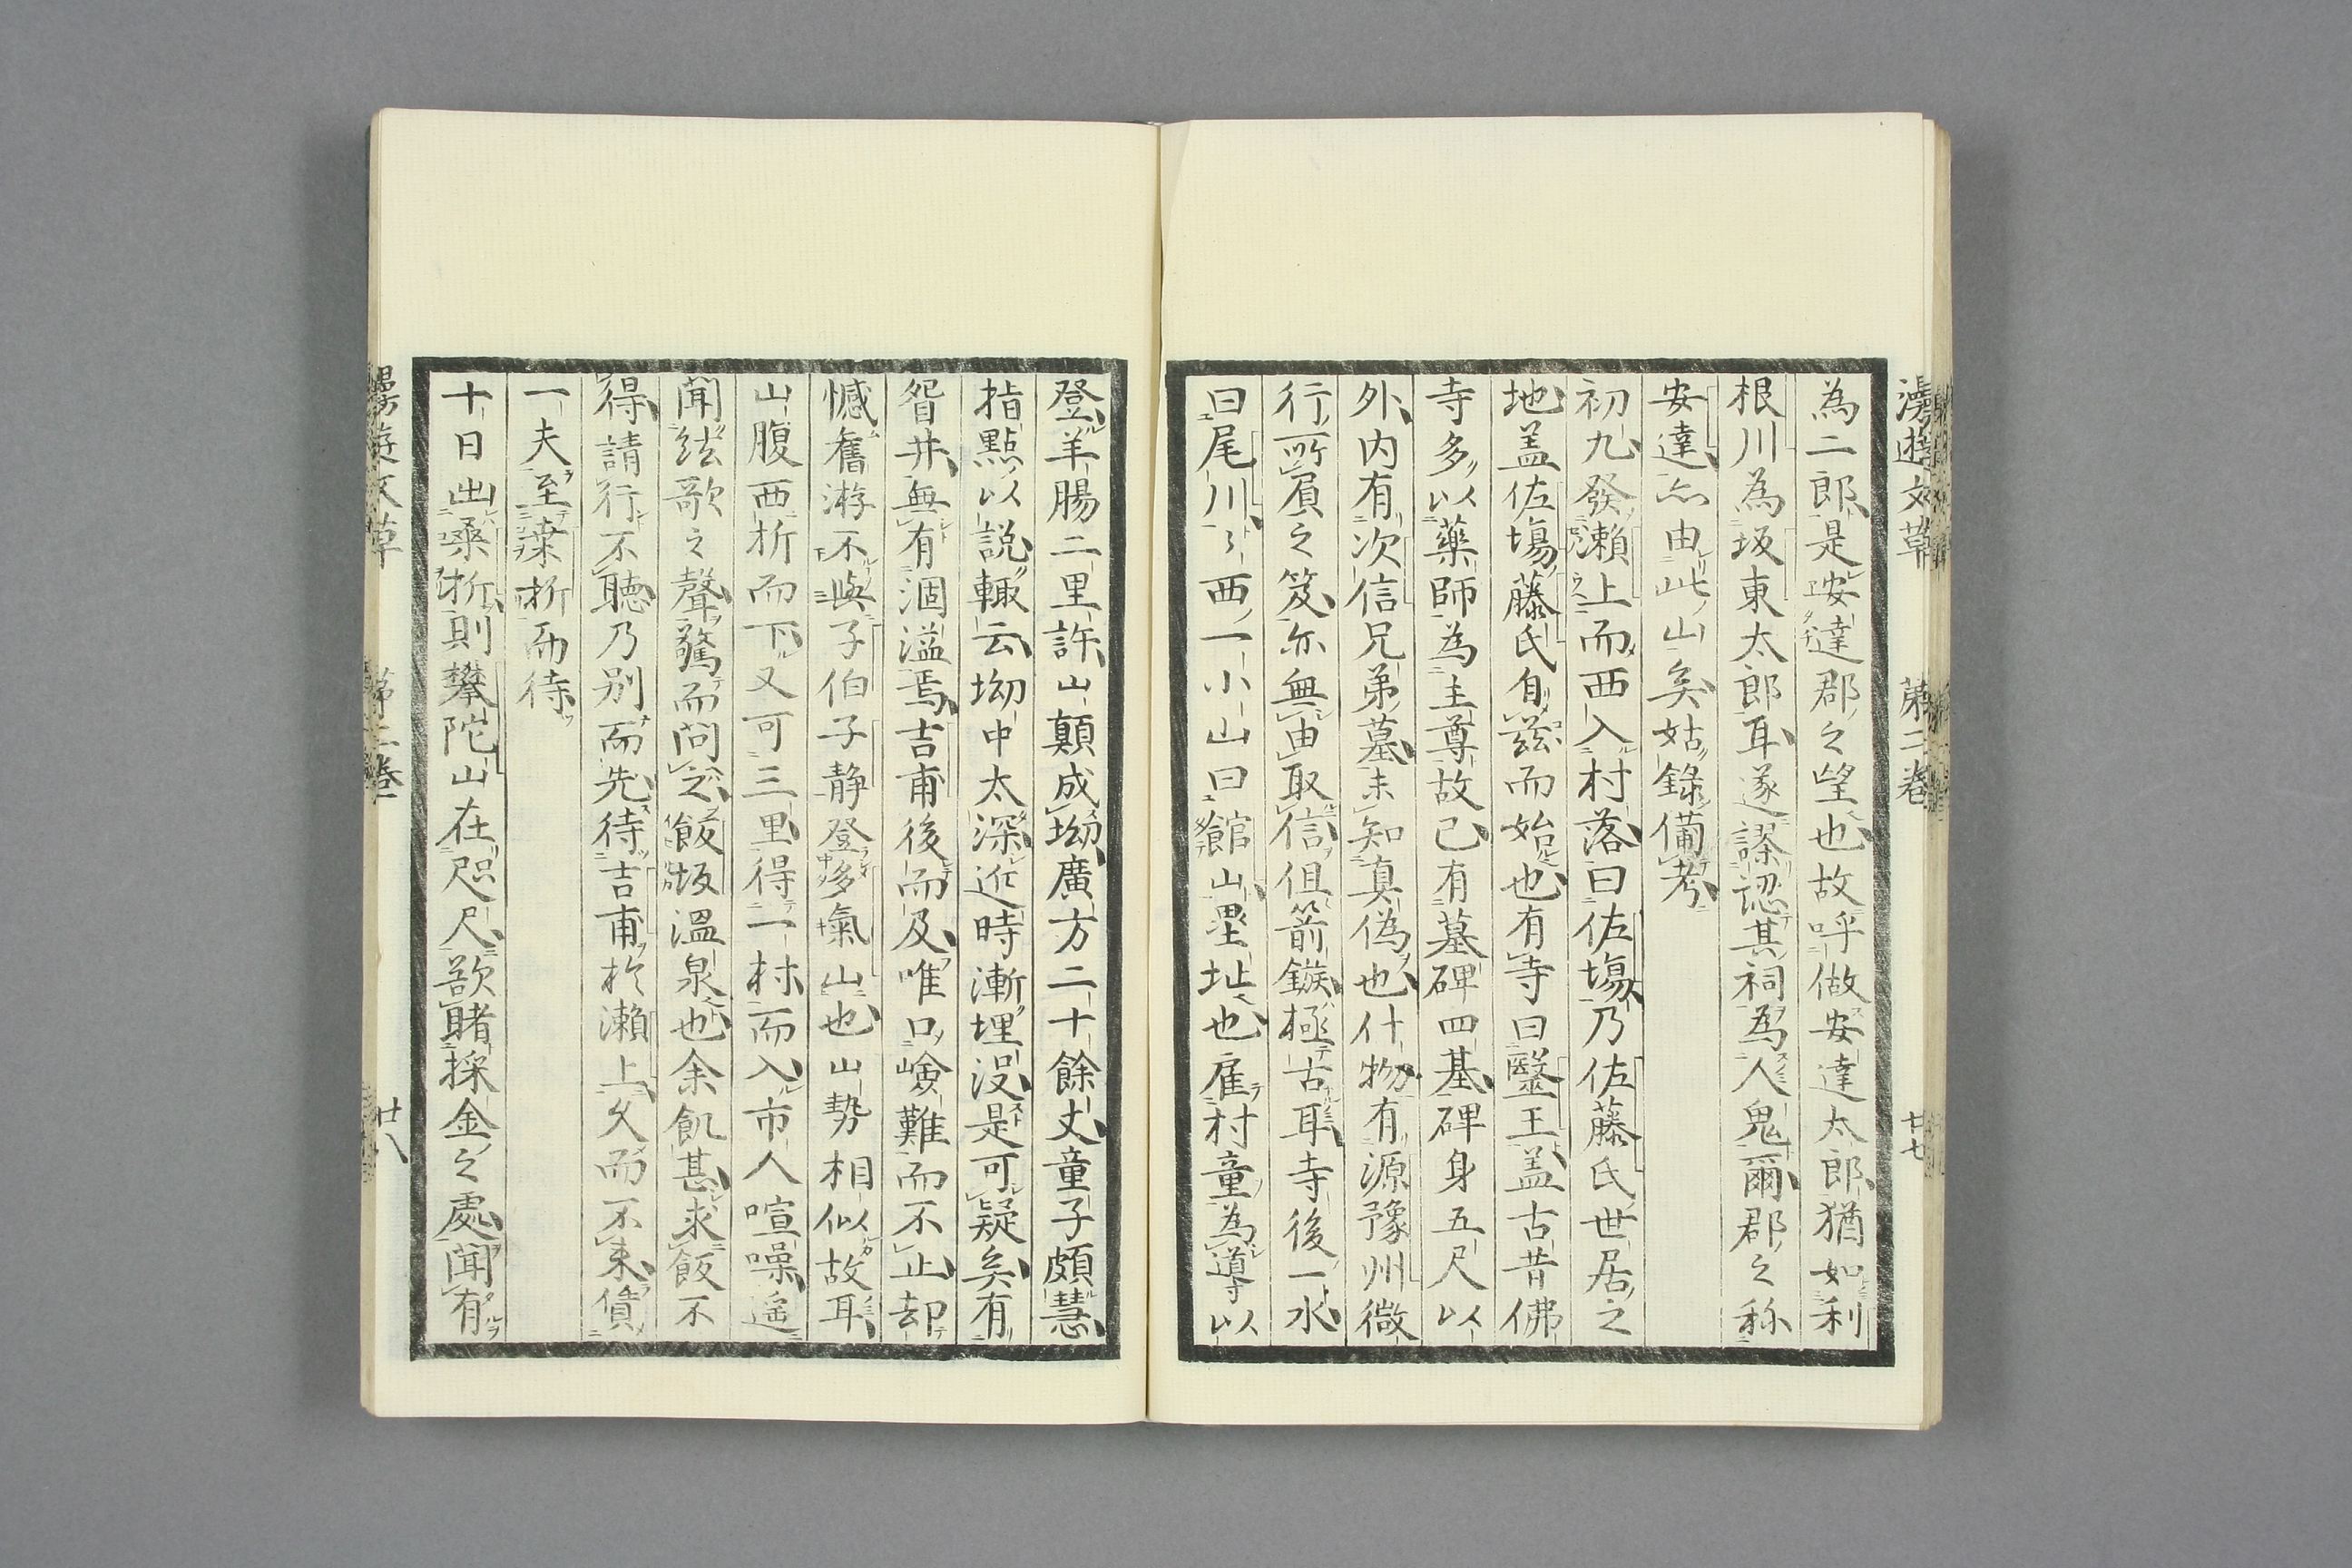 漫遊文草 第二卷 廿七
為二郎是安達郡之望也故呼做安達太郎猶如利
根川為坂東太郎耳遂謬認其祠為人鬼爾郡之称
安達亦由此山矣姑錄備考
初九發瀬上而西入村落曰佐塲乃佐藤氏世居之
地盖佐塲藤氏自茲而始也有寺曰醫王盖古昔佛
寺多以藥師為主尊故已有墓碑四基碑身五尺以
外内有次信兄弟墓未知真偽也什物有源豫州微
行所負之笈亦無由取信俱箭鏃極古耳寺後一水
曰尾川々西一小山曰館山壘址也雇村童為導以
登羊腸二里許山顛成坳廣方二十餘丈童子頗慧
指點以説輙云坳中太深近時漸埋没是可疑矣有
眢井無有涸溢焉吉甫後而及唯口嶮難而不止却
憾舊游不與子伯子静登多氣山也山勢相似故耳
山腹西折而下又可三里得一村而入市人喧噪遥
聞絃歌之聲驚而問之飯坂温泉也余飢甚求飯不
得請行不聴乃別而先待吉甫於瀬上久而不来債
一夫至桒折而待
十日出桑折則攀陀山在咫尺欲睹採金之處聞有
漫遊文草 第二卷 廿八